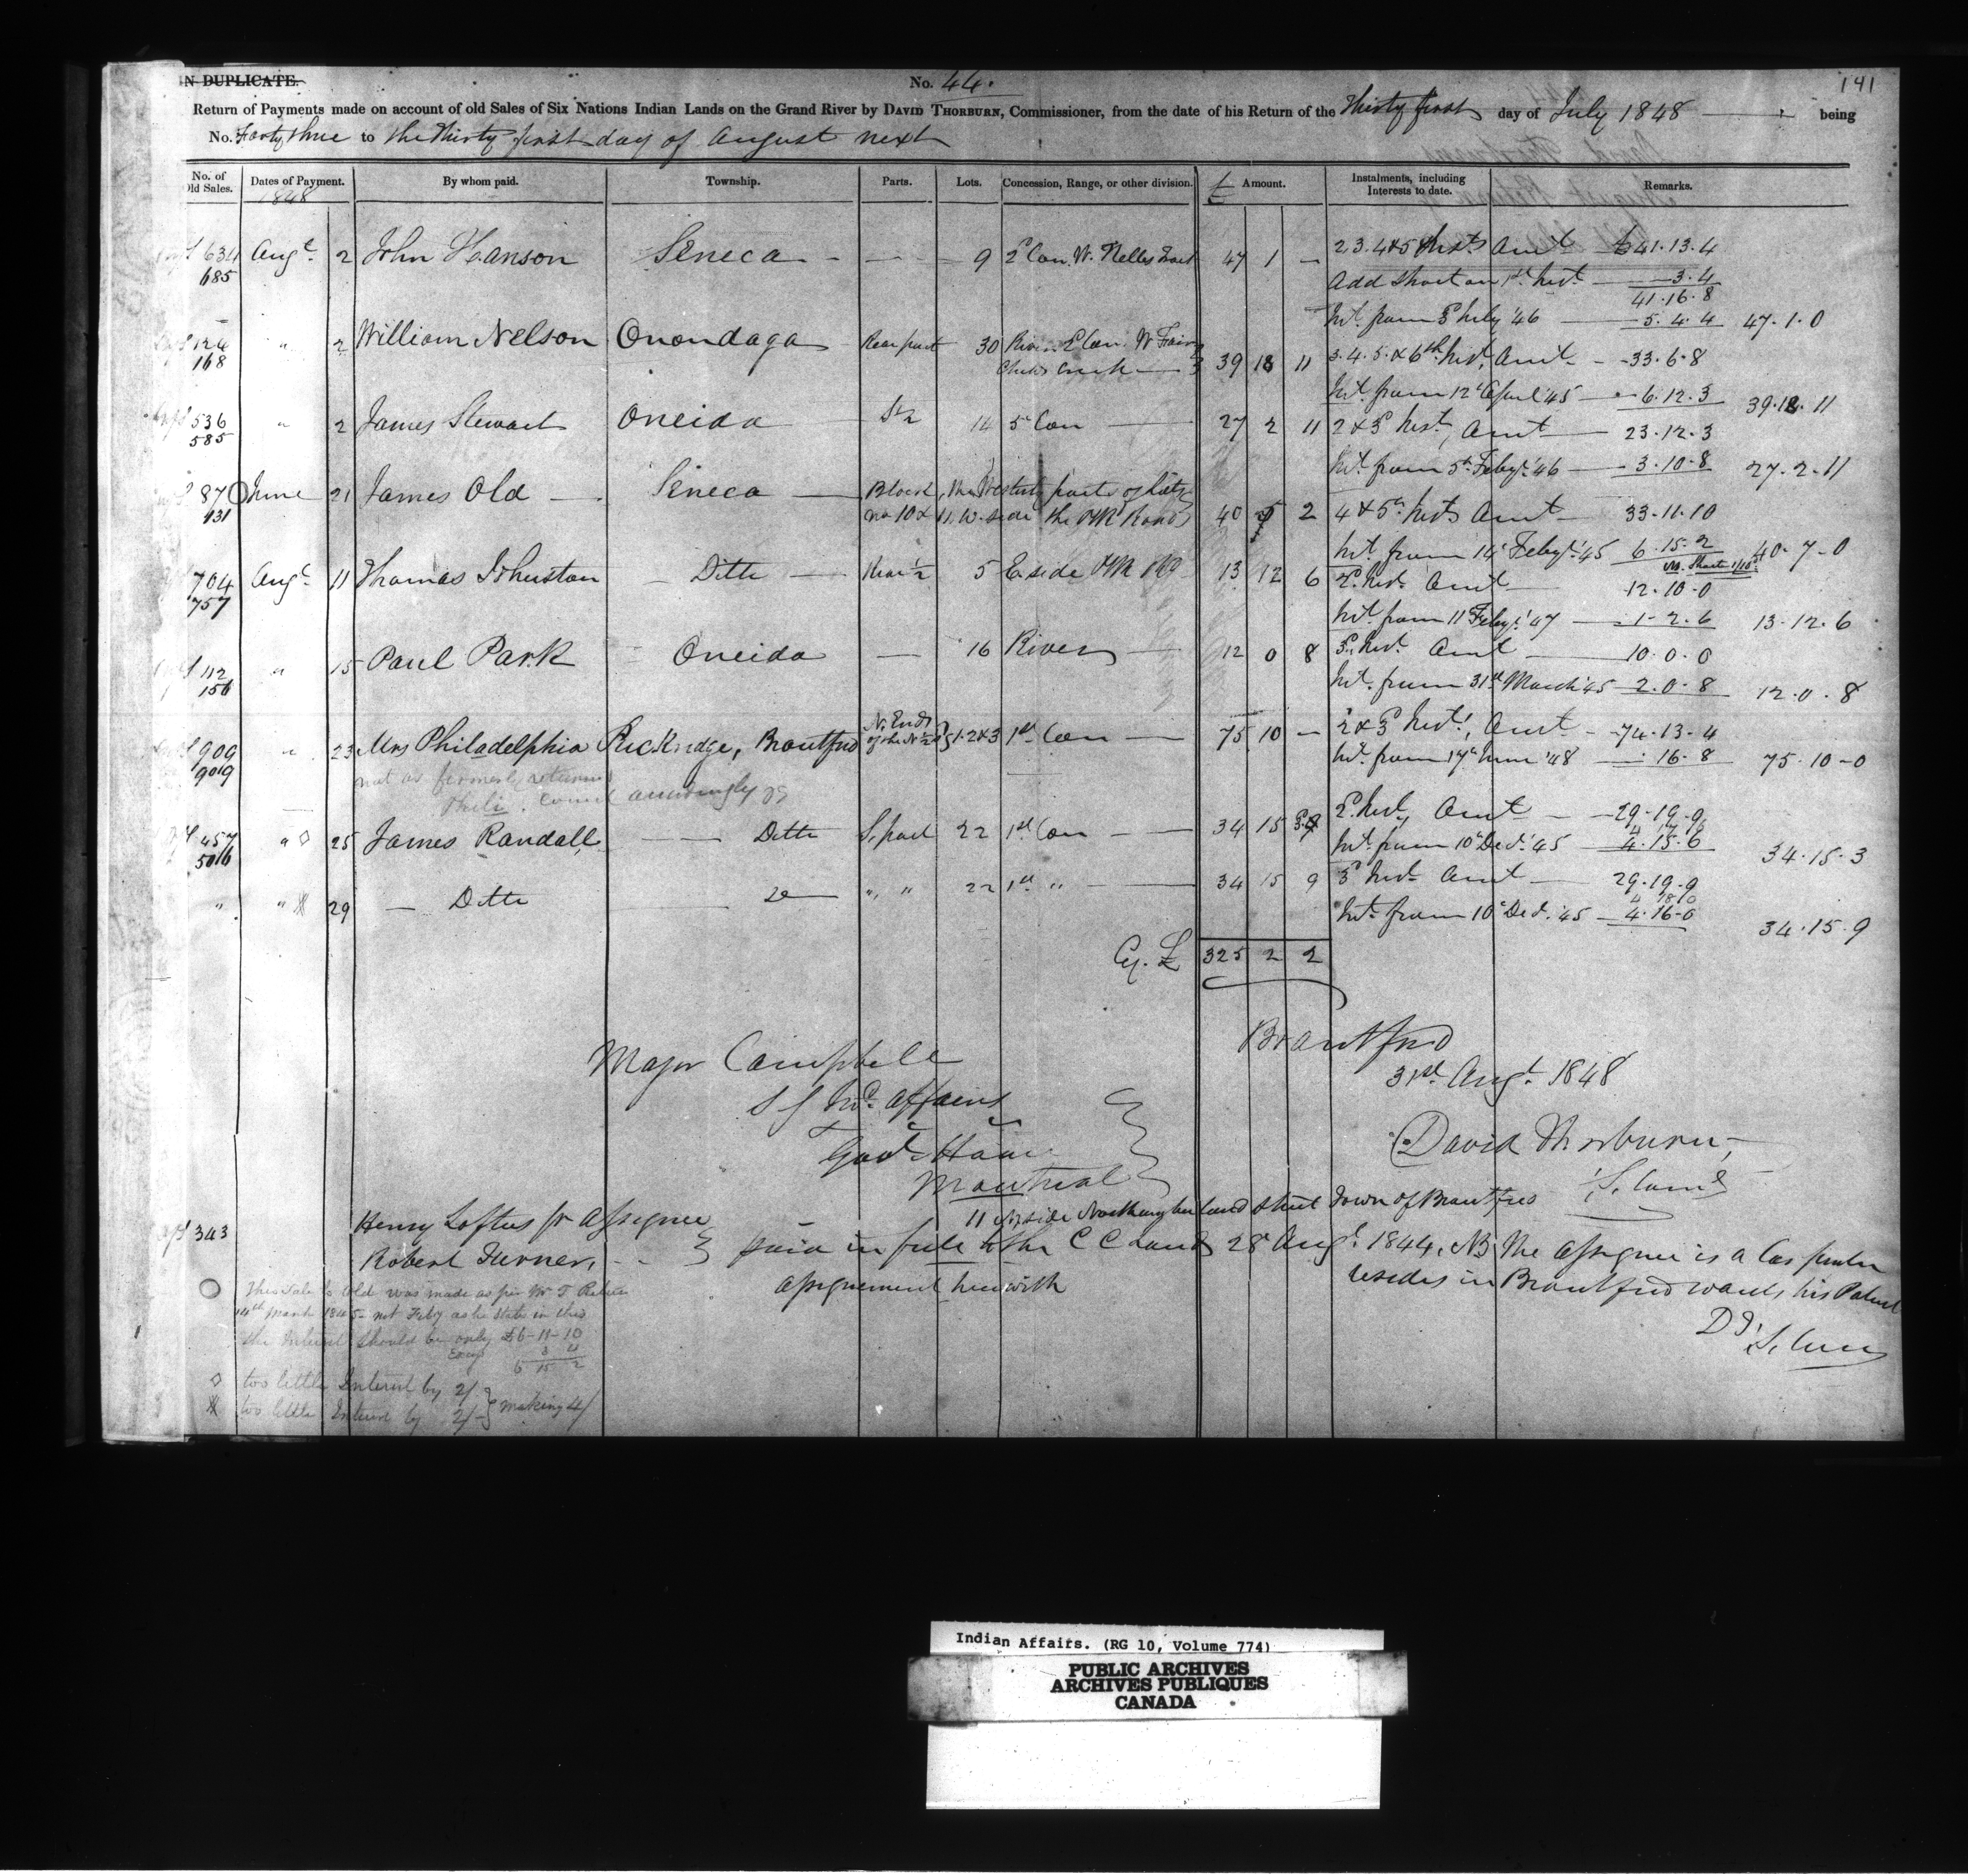 IN DUPLICATE.
No. 44.
141
Return of Payments made on account of old Sales of Six Nations Indian Lands on the Grand River by DAVID THORBURN, Commissioner, from the date of his Return of the Thirty first day of July 1848 being
No. Forty three to the Thirty first day of August next
No. of Old Sales. Dates of Payment. By whom paid. Township. Parts. Lots. Concession, Range, or other division. £ Amount. Instalments, including Interests to date. Remarks.
1848
634 Augt 2 John Hanson Seneca 9 2 Con. W. Nelles Tract 47 1 — 2.3.4&5 Insts Amt £41.13.4
685 Add Short on 1st Inst. 3.4
41.16.8
Int. from '46 5.4.4 47.1.0
124 " 2 William Nelson Onondaga Rear part 30 River 39 18 11 3.4.5.&6th Inst. Amt 33.6.8
168 Creek
Int. from 12 April '45 6.12.3 39.18.11
536 " 2 James Stewart Oneida S½ 14 5th Con 27 2 11 2&3 Inst, Amt 23.12.3
585
Int. from 5th Feby. '46 3.10.8 27.2.11
870 June 21 James Old Seneca Block, the Westerly parts of Lots
931 no 10 & 11. W. side the Road 40 2 4&5th Insts Amt 33.11.10
Int. from 14 Feby. '45 6.15.2 40.7.0
704 Augt 11 Thomas Johnston Ditto Rear ½ 5 E side 13 12 6 Inst. Amt 12.10.0
757
Int. from 11 Feby. '47 1.2.6 13.12.6
112 " 15 Paul Park Oneida — 16 River 12 0 8 Inst. Amt 10.0.0
156
Int. from 31st March '45 2.0.8 12.0.8
909 " 23 Mrs Philadelphia Rickridge, Brantford N. Ends of the N½ 1.2&3 1st Con 75 10 — 2&3 Inst, Amt 74.13.4
9019
Int. from 17th June '48 16.8 75.10-0
not as formerly returned
Phili. Correct accordingly
457 " 25 James Randall Ditto S. part 22 1st Con 34 15 3 2 Inst, Amt 29.19.9
Int. from 10th Dec. '45 4.15.6 34.15.3
" " 29 Ditto Do " " 22 1st " 34 15 9 3 Inst. Amt 29.19.9
Int. from 10th Dec. '45 4.16-0 34.15.9
Cy. £ 325 2 2
Major Campbell
S G Ind. Affairs
Govt House
Montreal
Brantford
31st Augt. 1848
David Thorburn
343 Henry Loftus pr Assignee
Robert Turner
11 side Northumberland Street Town of Brantford
paid in full to the C C Lands 28 Augt. 1844. NB, The Assignee is a Carpenter
assignment herewith
resides in Brantford wants his Patent
This Sale to Old was made as per Mr T
14th March 1845 - not Feby as he states in this
the Interest should be only £6-11-10
3 4
6 15 2
too little Interest by 2/
too little Interest by 2/- } making 4/
Indian Affairs. (RG 10, Volume 774)
PUBLIC ARCHIVES
ARCHIVES PUBLIQUES
CANADA